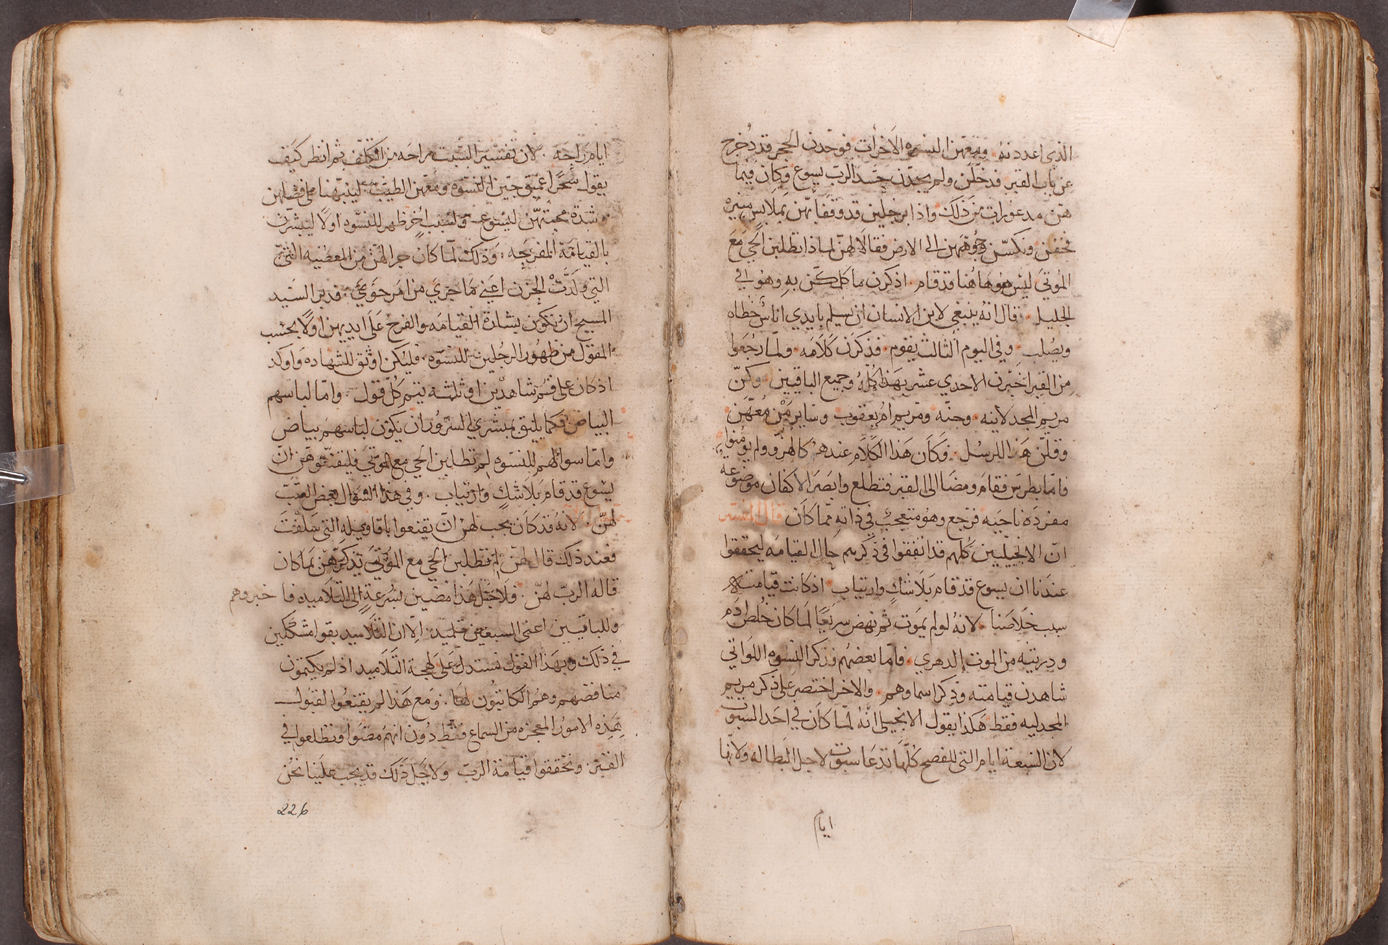 الذي اعددنه ومعهن النسوه الاخرات فوجدن الحجر قد دُحرج
عن باب القبر فدخلن ولم يجدن جسد الرب يسوع وكان فيما
هن مدعورات من ذلك واذا برجلين قد وقفا بهن بملابس منيره
فخفن ونكسن وجوههن الى الارض فقالا لهن لماذا تطلبن الحي مع
الموتي ليس هو هاهنا قد قام اذكرن ما كلمكن به وهو في
الجليل قال انه ينبغي لابن الانسان ان يسلم بايدي اناس خطاه
ويصلب وفي اليوم الثالث يقوم فذكرن كلامه ولما رجعوا
من القبر اخبرن الاحدي عشر بهذا كله وجميع الباقيين وكن
مريم المجدلانيه وحنه ومريم ام يعقوب وساير من معهن
وقلن هذا للرسل فكان هذا الكلام عندهم كالهزو ولم يومنوا
فاما بطرس فقام ومضا الى القبر فتطلع وابصر الاكفان موضوعه
مفرده ناحيه فرجع وهو متعجب في ذاته مما كان قال المفسر
ان الانجيليين كلهم قد اتفقوا في ذكرهم حال القيامه ليحققوا
عندنا ان يسوع قد قام بلا شك وارتياب اذ كانت قيامته
سبب خلاصنا لانه لو لم يموت ثم نهض سريعا لما كان خلص ادم
وذريته من الموت الدهري فاما بعضهم فذكر النسوه اللواتي
شاهدن قيامته وذكر اسماوهم والاخر اختصر على ذكر مريم
المجدليه فقط هكذا يقول الانجيلي انه لما كان في احد السبوت
لان السبعه ايام التي للفصح كلها تدعا سبوت لاجل البطاله ولانها
ايام
ايام راحه لان تفسير السبت راحه من الكلف ثم انظر كيف
يقول سحرا عميق جين النسوه ومعهن الطيب لينبهنا على فضلهن
وشدة محبتهن ليسوع ولسبب اخر ظهر للنسوه اولا ليبشرن
بالقيامة المفرحه وذلك لما كان حوا لهن من المعصيه
التي ولدت الحزن اعني ما جري من امر حوي فدبر السيد
المسيح ان يكون بشارة القيامه والفرح على ايديهن اولا بحسب
المقول من ظهور الرجلين للنسوه فليكن اوثق للشهاده واوكد
اذ كان على فم شاهدين او ثلثه يتم كل قول واما لباسهم
البياض فكما يليق بمبشري السرور ان يكون لباسهم بياض
واما سوالهم للنسوه لم تطلبن الحي مع الموتي فليقنعوهن ان
يسوع قد قام بلا شك وارتياب وفي هذا السوال بعض العتب
لهن لانه قد كان يجب لهن ان يقنعوا باقاويله التي سلفت
فعند ذلك قال لهن لم تطلبن الحي مع الموتى يذكرهن بما كان
قاله الرب لهن فلاجل هذا مضين بسرعه الى التلاميذ فاخبروهم
وللباقيين اعنى السبعين تلميذ الا ان التلاميذ بقوا مشككين
في ذلك وبهذا القول نستدل على لهجة التلاميذ اذ لم يكتمون
مناقصهم وهم الكاتبون لها ومع هذا لم يقنعوا لقبول
هذه الامور المعجزه من السماع انهم مضوا وتطلعوا في
القبر وتحققوا قيامة الرب ولاجل ذلك قد يجب علينا نحن
226